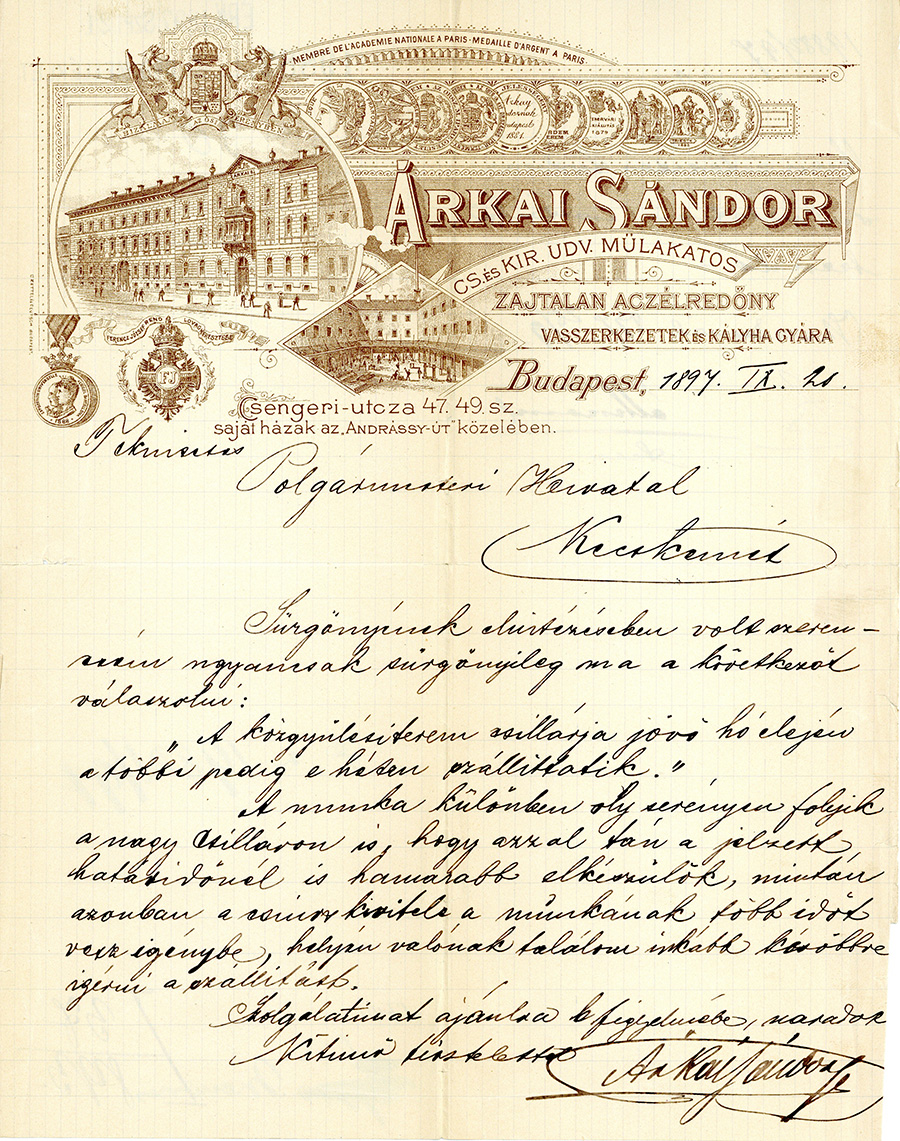 MEMBRE DE L'ACADEMIE NATIONALE A PARIS - MEDAILLE D'ARGENT A PARIS.
BIZALMAM AZ ŐSI ERÉNYBEN
ÁRKAI SÁNDOR
CS. ÉS KIR. UDV. MŰLAKATOS
ZAJTALAN ACZÉLREDŐNY
VASSZERKEZETEK és KÁLYHA GYÁRA
FERENCZ JÓZSEF REND LOVAGKERESZTESE
FJ
Budapest, 1897. IX. 20.
Csengeri-utcza 47. 49. sz.
saját házak az „ANDRÁSSY-ÚT" közelében.
Tekintetes
Polgármesteri Hivatal
Kecskemét
Sürgönyének elintézésében volt szeren-
csém ugyancsak sürgönyileg ma a következőt
válaszolni:
„A közgyűlésiterem csillárja jövő hó elején
a többi pedig e héten szállittatik."
A munka különben oly serényen folyik
a nagy csilláron is, hogy azzal tán a jelzett
határidőnél is hamarabb elkészülök, mintán
azonban a csinos kivitele a munkának több időt
vesz igénybe, helyén valónak találom inkább későbbre
igérni a szállitást.
Szolgálatimat ajánlva b. figyelmébe, maradok
Kitünő tisztelettel
Árkay Sándor